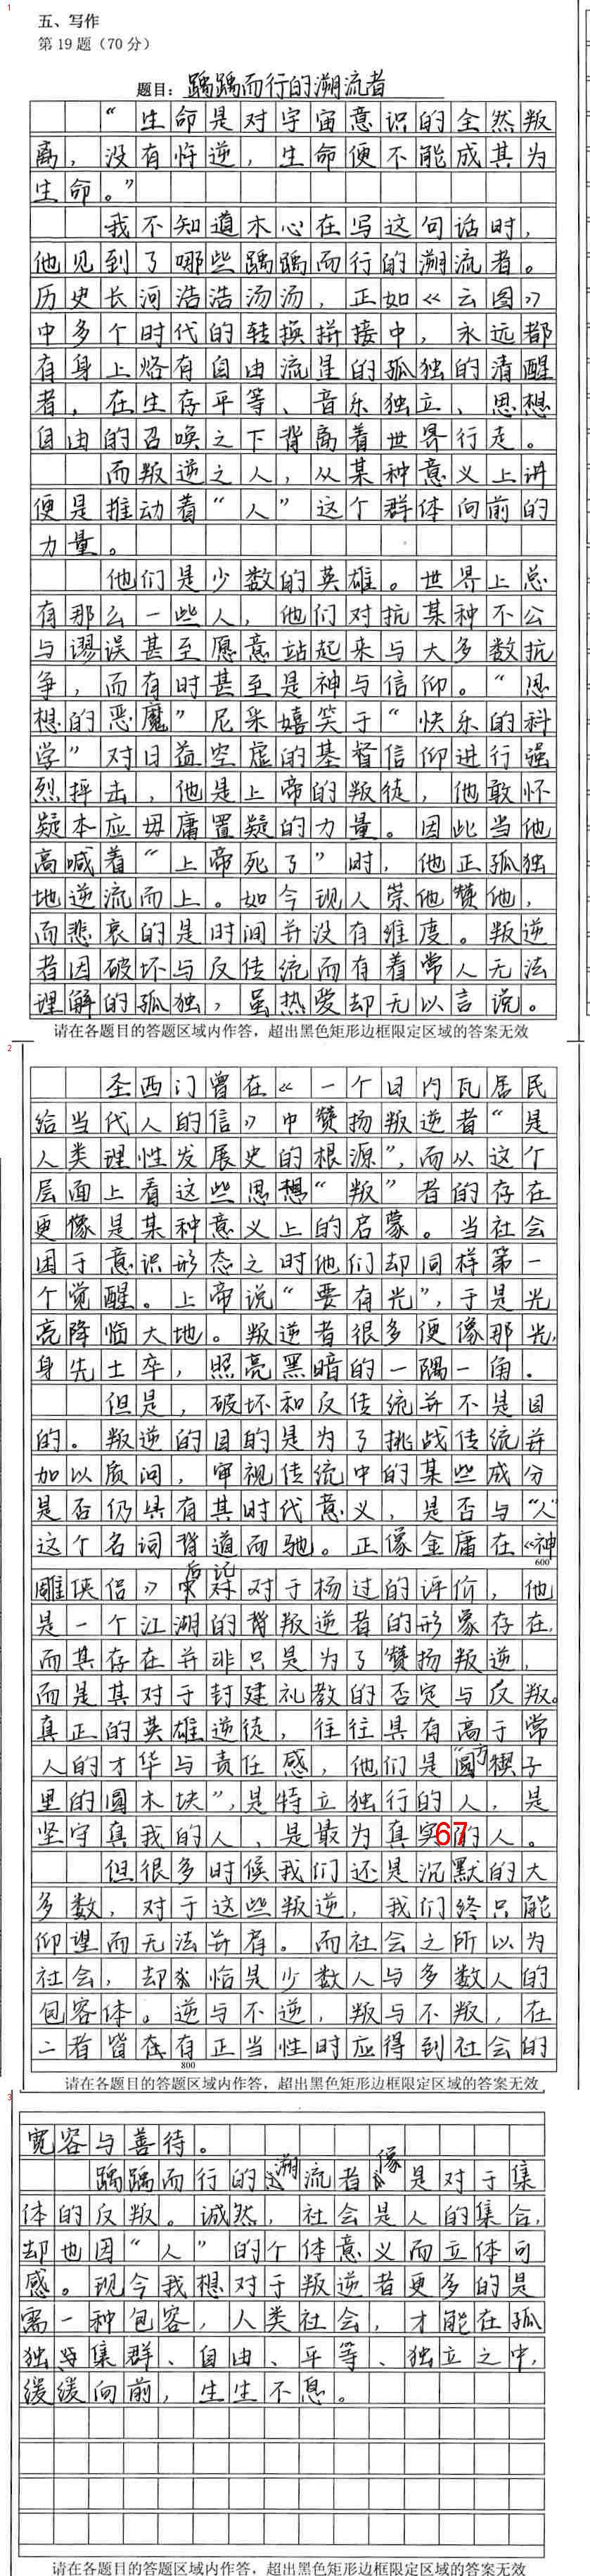 1
五、写作
第19题（70分）
题目：踽踽而行的溯流者
“生命是对宇宙意识的全然叛
离，没有忤逆，生命便不能成其为
生命。”
我不知道木心在写这句话时，
他见到了哪些踽踽而行的溯流者。
历史长河浩浩汤汤，正如《云图》
中多个时代的转换拼接中，永远都
有身上烙有自由流星的孤独的清醒
者，在生存平等、音乐独立、思想
自由的召唤之下背离着世界行走。
而叛逆之人，从某种意义上讲
便是推动着“人”这个群体向前的
力量。
他们是少数的英雄。世界上总
有那么一些人，他们对抗某种不公
与谬误甚至愿意站起来与大多数抗
争，而有时甚至是神与信仰。“思
想的恶魔”尼采嬉笑于“快乐的科
学”对日益空虚的基督信仰进行强
烈抨击，他是上帝的叛徒，他敢怀
疑本应毋庸置疑的力量。因此当他
高喊着“上帝死了”时，他正孤独
地逆流而上。如今现人崇他赞他，
而悲哀的是时间并没有维度。叛逆
者因破坏与反传统而有着常人无法
理解的孤独，虽热爱却无以言说。
请在各题目的答题区域内作答，超出黑色矩形边框限定区域的答案无效
2
圣西门曾在《一个日内瓦居民
给当代人的信》中赞扬叛逆者“是
人类理性发展史的根源”，而以这个
层面上看这些思想“叛”者的存在
更像是某种意义上的启蒙。当社会
困于意识形态之时他们却同样第一
个觉醒。上帝说“要有光”，于是光
亮降临大地。叛逆者很多便像那光，
身先士卒，照亮黑暗的一隅一角。
但是，破坏和反传统并不是目
的。叛逆的目的是为了挑战传统并
加以质问，审视传统中的某些成分
是否仍具有其时代意义，是否与“人”
这个名词背道而驰。正像金庸在《神
600
雕侠侣》后记对对于杨过的评价，他
是一个江湖的背叛逆者的形象存在，
而其存在并非只是为了赞扬叛逆，
而是其对于封建礼教的否定与反叛。
真正的英雄逆徒，往往具有高于常
人的才华与责任感，他们是“方楔子
里的圆木块”，是特立独行的人，是
坚守真我的人，是最为真实的人。
67
但很多时候我们还是沉默的大
多数，对于这些叛逆，我们终只能
仰望而无法并肩。而社会之所以为
社会，却恰是少数人与多数人的
包容体。逆与不逆，叛与不叛，在
二者皆有正当性时应得到社会的
800
请在各题目的答题区域内作答，超出黑色矩形边框限定区域的答案无效
3
宽容与善待。
踽踽而行的溯流者像是对于集
体的反叛。诚然，社会是人的集合，
却也因“人”的个体意义而立体可
感。现今我想对于叛逆者更多的是
需一种包容，人类社会，才能在孤
独与集群、自由、平等、独立之中，
缓缓向前，生生不息。
请在各题目的答题区域内作答，超出黑色矩形边框限定区域的答案无效